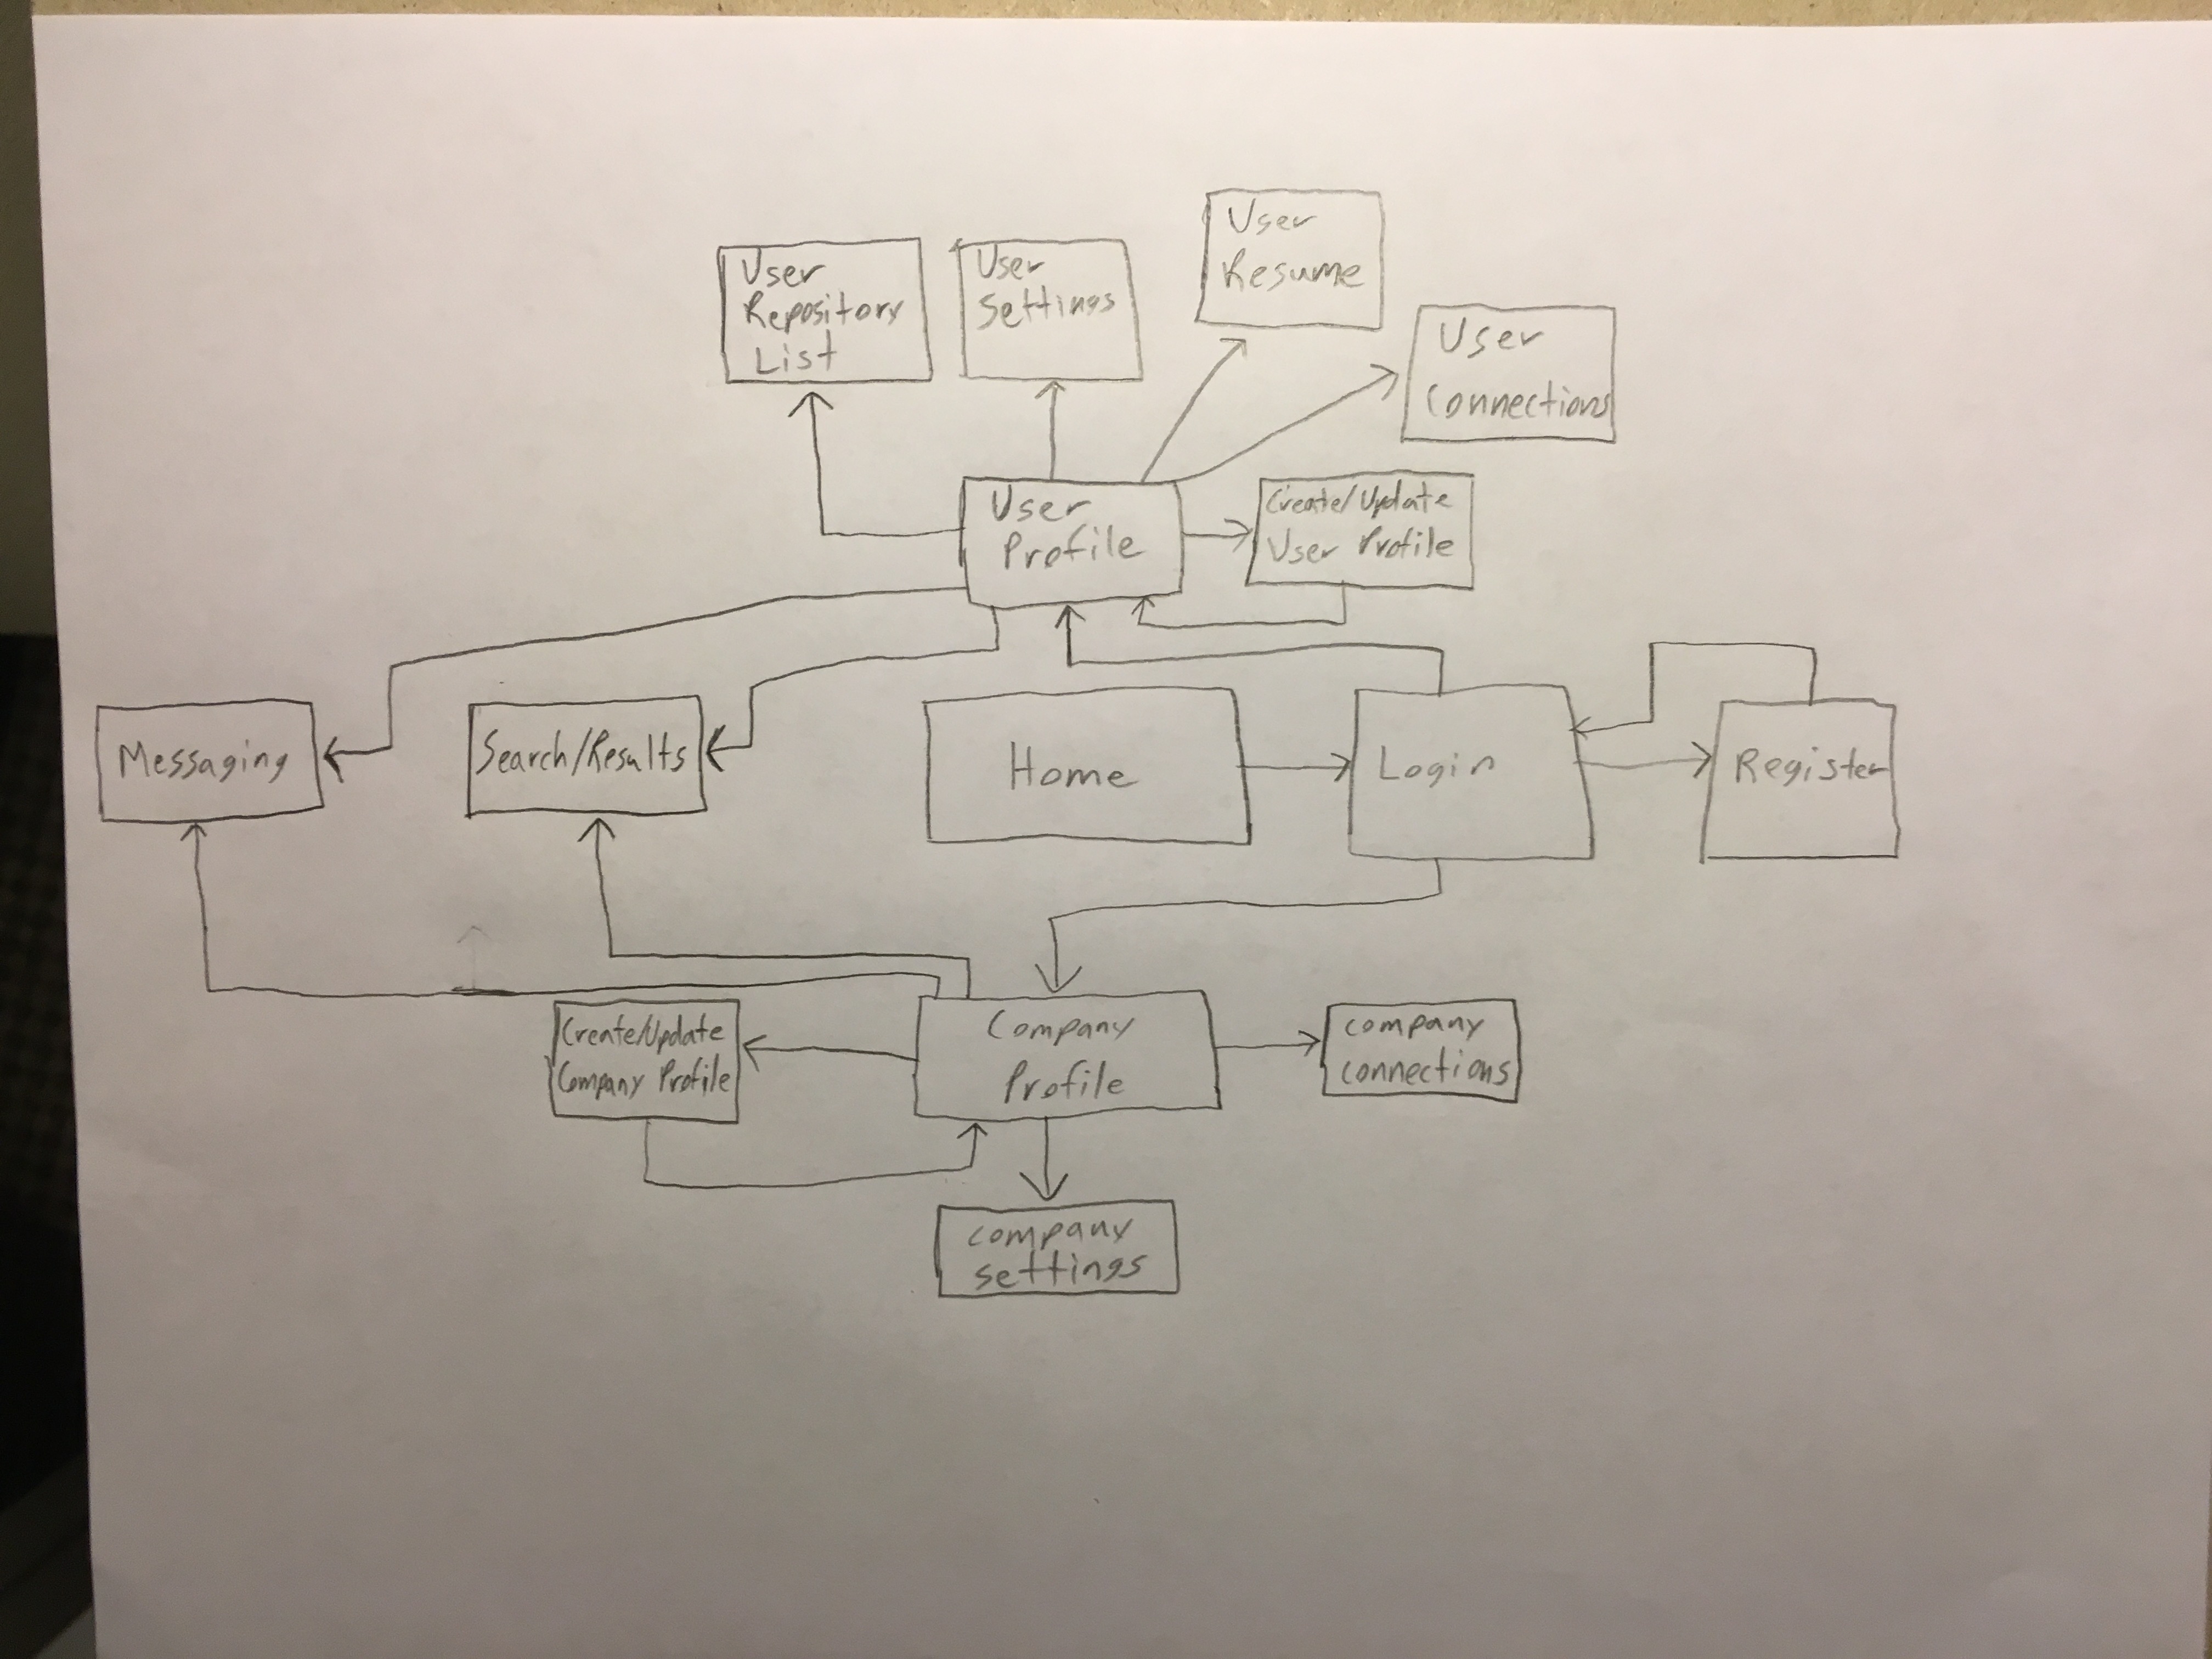 User
Resume
User
Repository
List
User
Settings
User
Connections
User
Profile
Create/Update
User Profile
Messaging
Search/Results
Home
Login
Register
Create/Update
Company Profile
Company
Profile
company
connections
company
settings